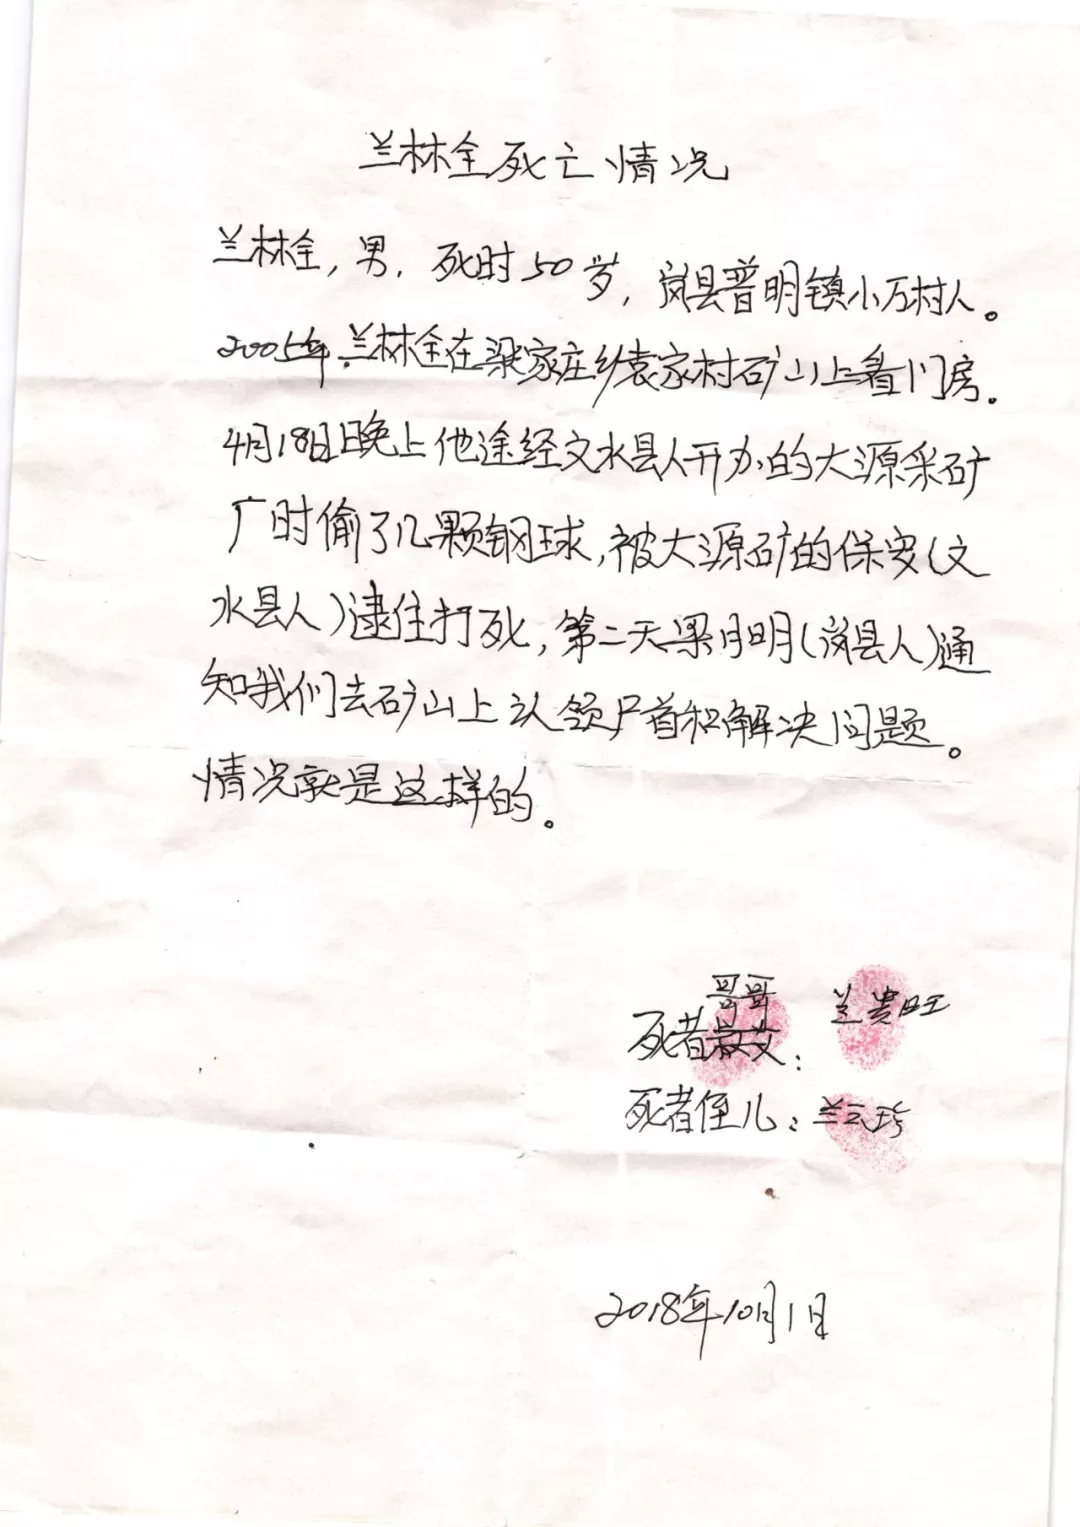 兰林全死亡情况
兰林全，男，死时50岁，岚县普明镇小万村人。
2005年兰林全在梁家庄乡袁家村矿山上看门房。
4月18日晚上他途经文水县人开办的大源采矿
厂时偷了几颗钢球，被大源矿的保安（文
水县人）逮住打死，第二天梁月明（岚县人）通
知我们去矿山上认领尸首和解决问题。
情况就是这样的。
哥哥
死者：兰贵旺
死者侄儿：兰云珍
2018年10月1日